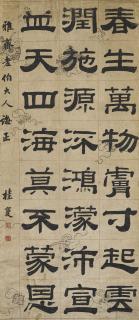 春生萬物膚寸起雲
潤施源深鴻濛沛宣
天四海莫不蒙恩
雅伯大人誨正
桂